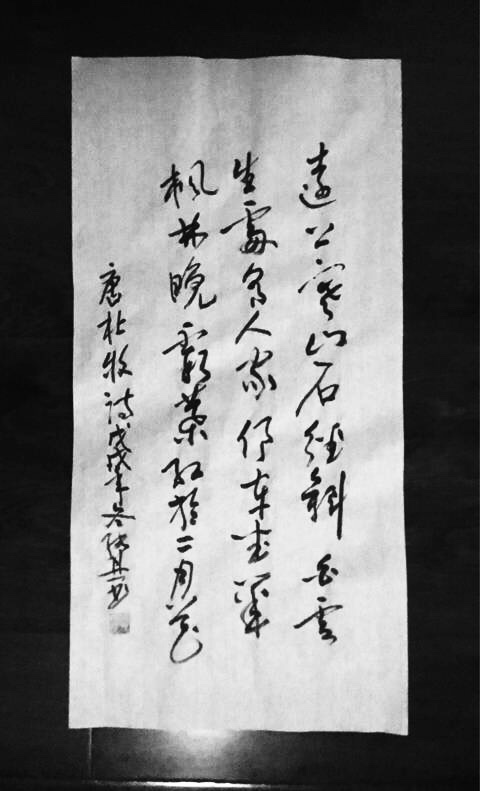 遠上寒山石徑斜白雲
生處有人家停車坐愛
楓林晚霜葉紅於二月花
唐杜牧詩戊戌年冬書